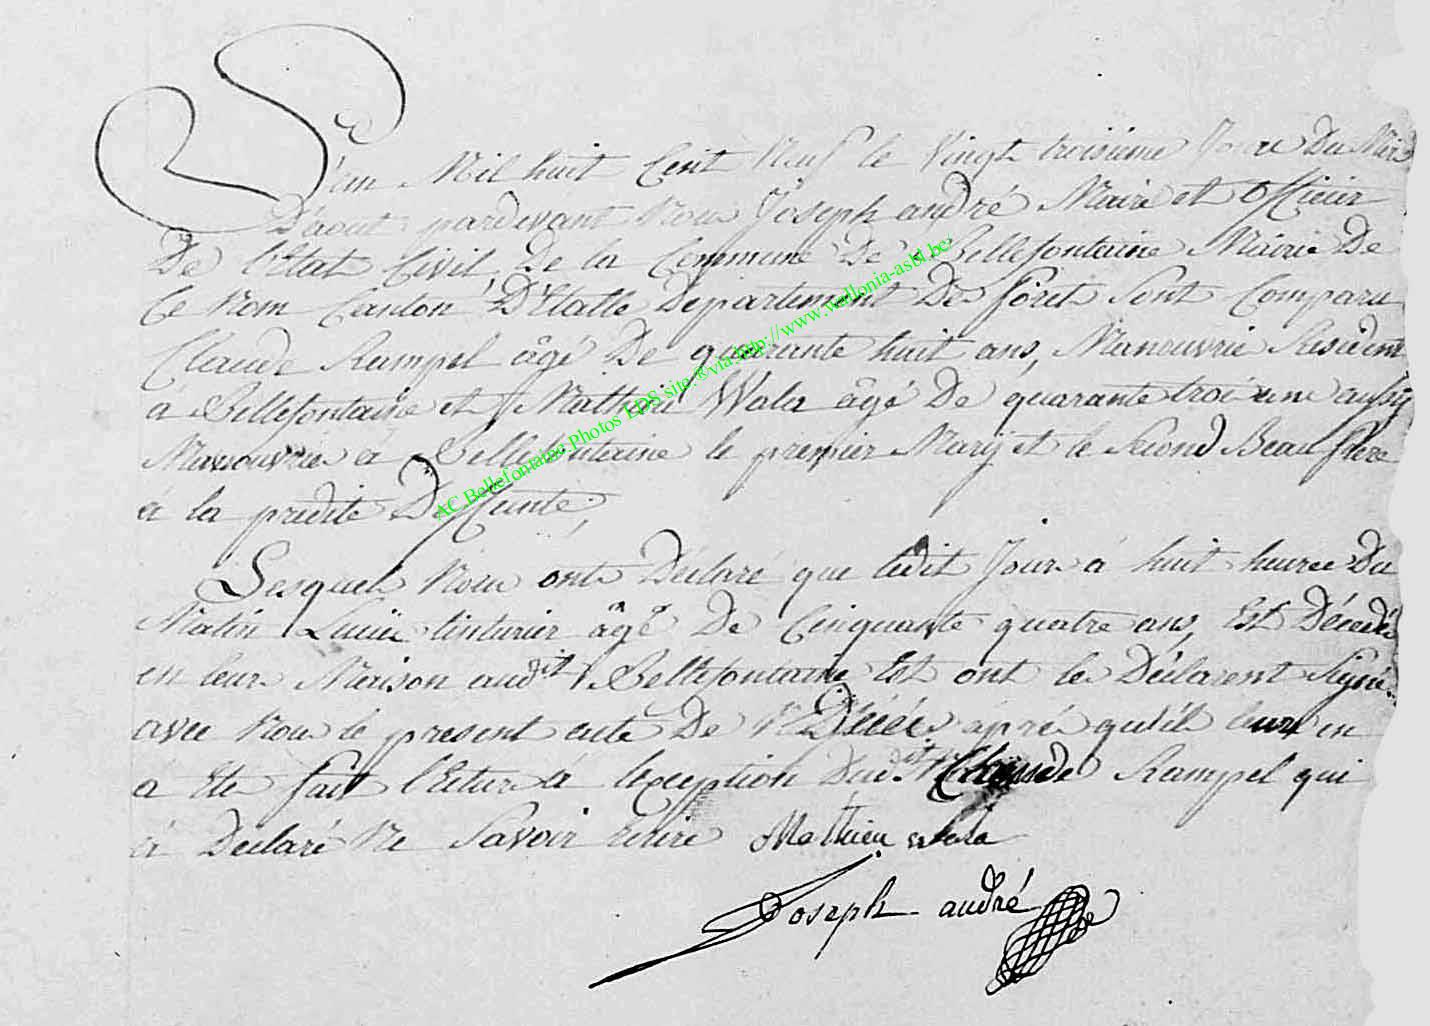 L'an Mil huit Cent Neuf le Vingt troisième Jour Du Mois
D'aout pardevant Nous Joseph andré Maire et officier
De l'Etat Civil De la Commune De Bellefontaine Mairie De
Ce Nom Canton D'Etalle Departement Des forêt Sont Comparu
Claude Rampel âgé De quarante huit ans, Manouvrié Resident
à Bellefontaine et Mathieu Wala âgé De quarante trois ans aussy
Manouvrié à Bellefontaine le premier Mary et le Second Beau frere
à la predite Deffunte,
Lesquel Nous onts Déclaré que ledit Jour à huit heures Du
Matin tinturier âgé De Cinquante quatre ans, Est Décedé
en leur Maison audit Bellefontaine Est ont le Déclarent Signé
avec Nous le present acte De Décés aprés qu'il leur en
a Ete fait l'Etur à l'exception Dudit Claude Rampel qui
à Declaré Ne Savoir Mathieu wala
Joseph andré
AC Bellefontaine Photos EPS site:®via http://www.wallonia-asbl.be: